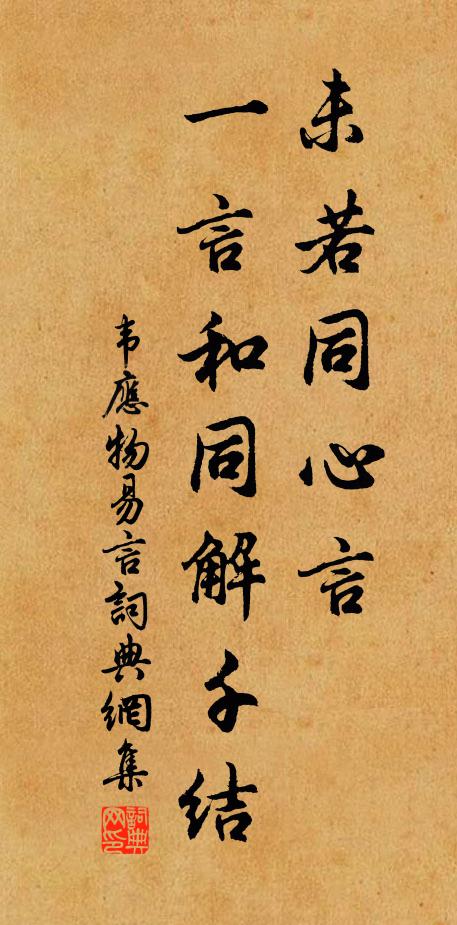 未若同心言
一言和同解千结
韦應物易言詞典網集
詞典网印